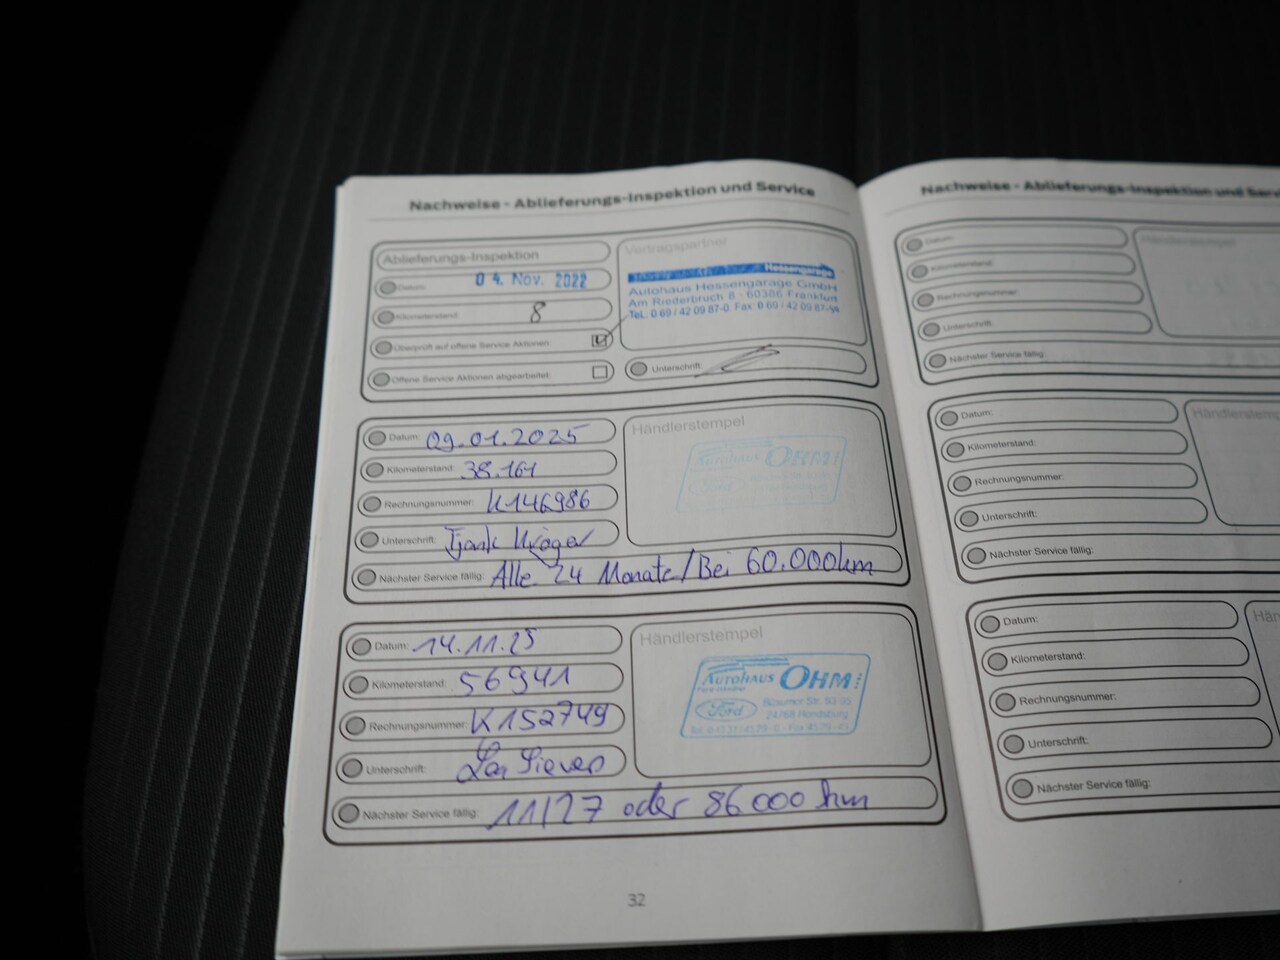 Nachweise - Ablieferungs-Inspektion und Service
Ablieferungs-Inspektion
Datum: 04. Nov. 2022
Kilometerstand: 8
Überprüft auf offene Service Aktionen:
Offene Service Aktionen abgearbeitet:
Vertragspartner
Hessengarage
Autohaus Hessengarage GmbH
Am Riederbruch 8 · 60386 Frankfurt
Tel.: 0 69 / 42 09 87-0 Fax: 0 69 / 42 09 87-
Unterschrift:
Datum: 09.01.2025
Kilometerstand: 38.161
Rechnungsnummer: K146986
Unterschrift: Kröger
Nächster Service fällig: Alle 24 Monate/Bei 60.000km
Händlerstempel
AUTOHAUS OHM
Ford
Datum: 14.11.25
Kilometerstand: 56941
Rechnungsnummer: K152749
Unterschrift:
Nächster Service fällig: 11/27 oder 86000 km
Händlerstempel
AUTOHAUS OHM
Ford
Büsumer Str. 93-95
24768 Rendsburg
32
Nachweise - Ablieferungs-Inspektion und
Datum:
Kilometerstand:
Rechnungsnummer:
Unterschrift:
Nächster Service fällig:
Händlerstempel
Datum:
Kilometerstand:
Rechnungsnummer:
Unterschrift:
Nächster Service fällig:
Händlerstemp
Datum:
Kilometerstand:
Rechnungsnummer:
Unterschrift:
Nächster Service fällig:
Hän